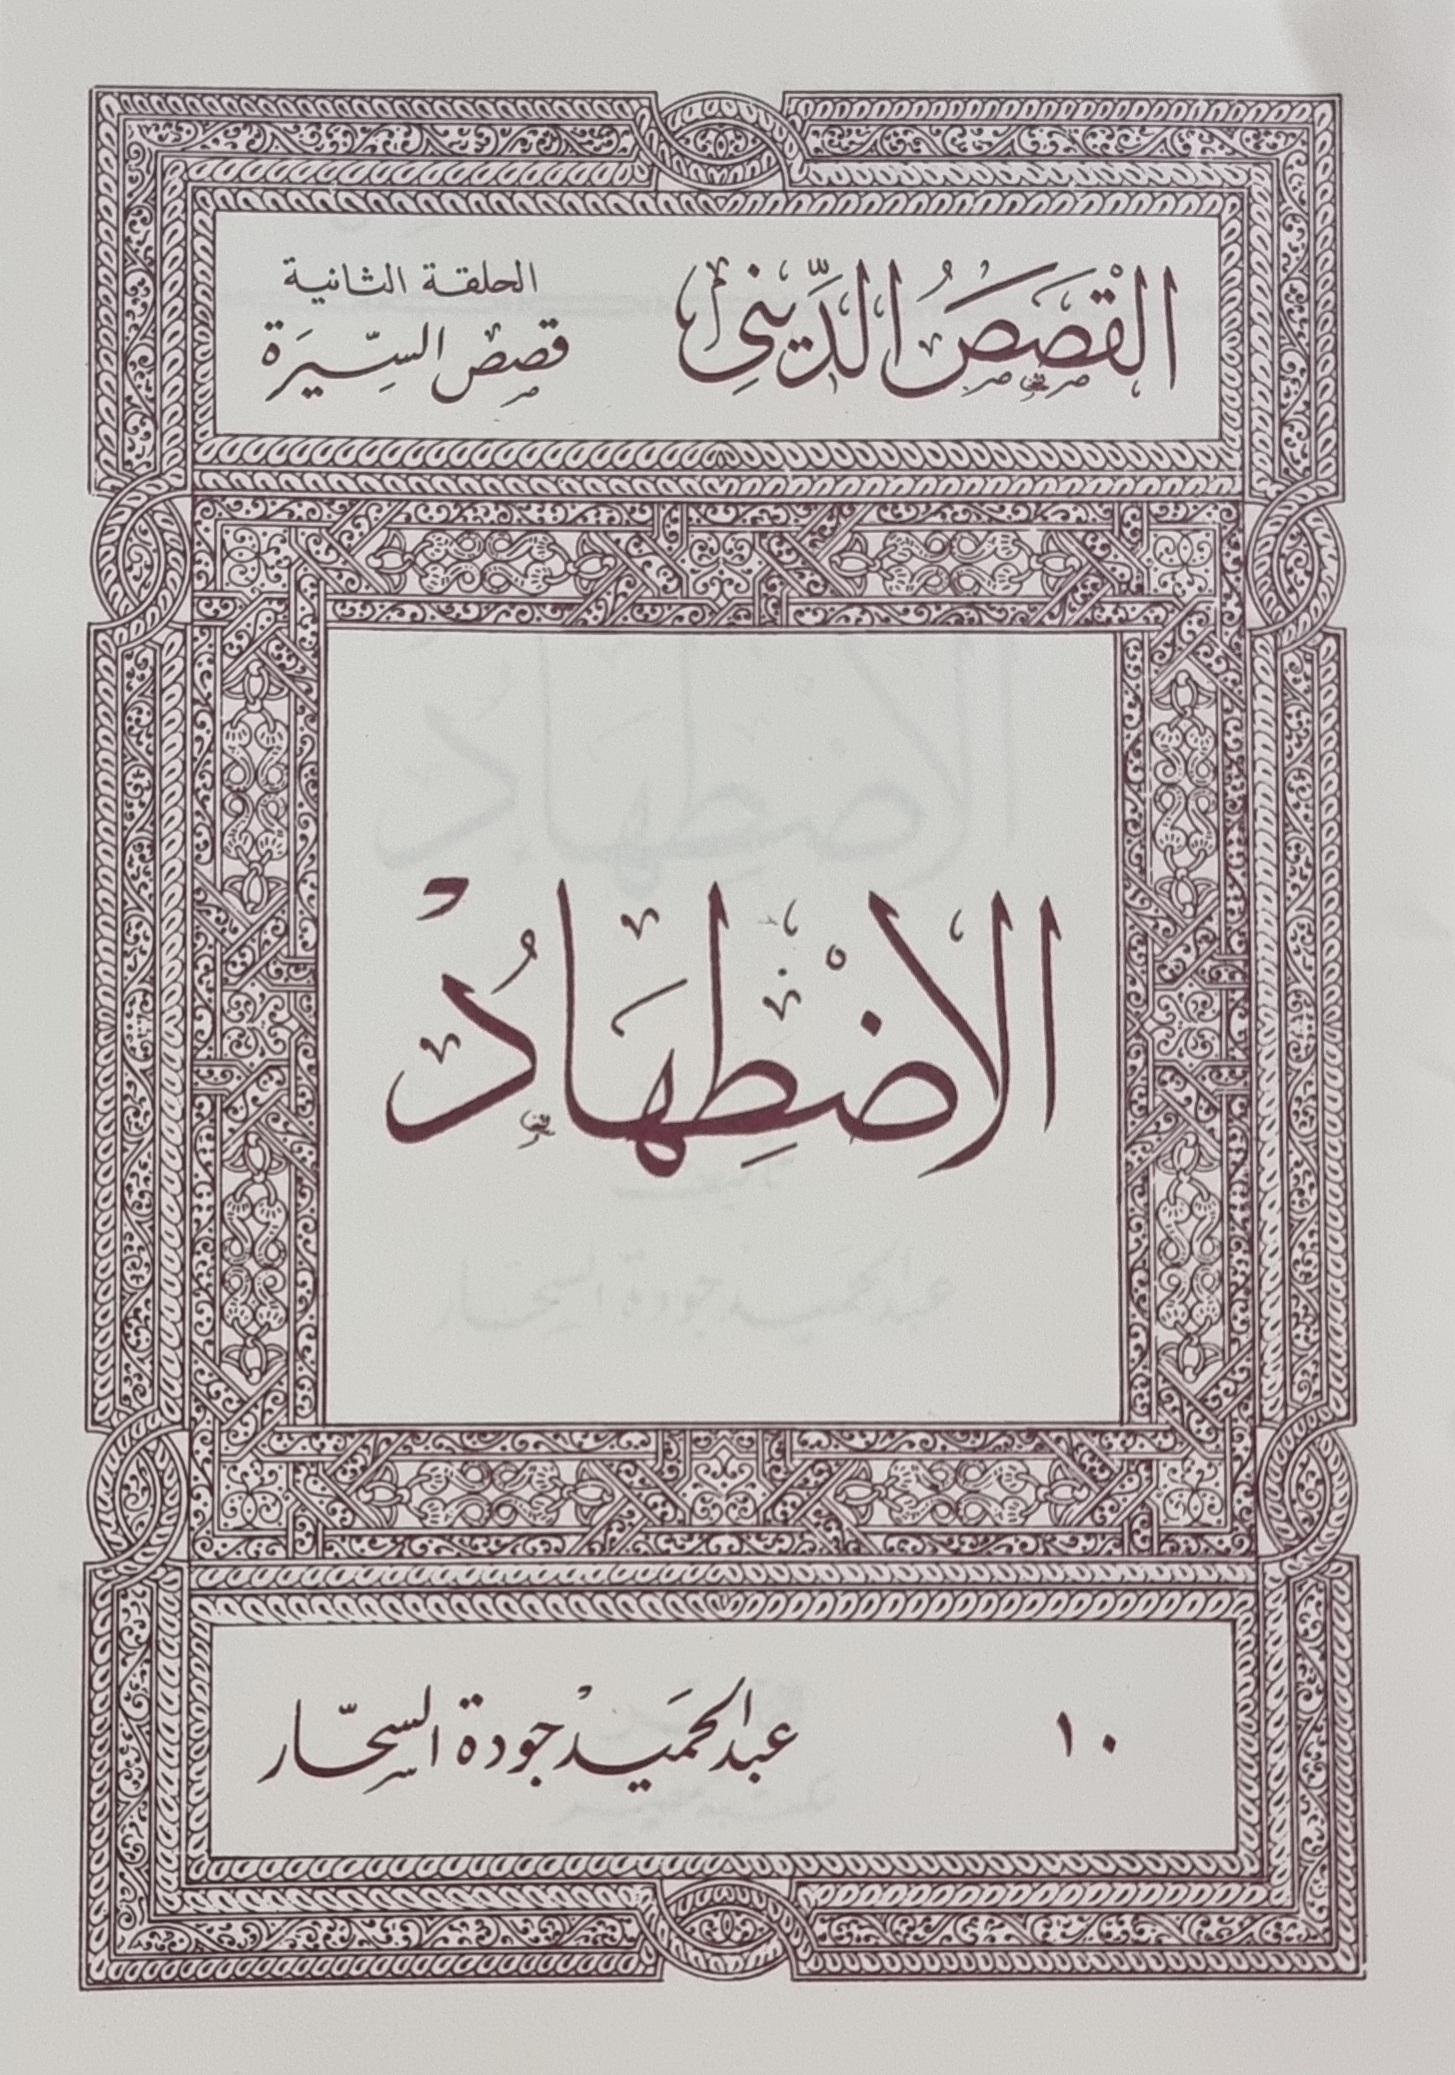 القَصَصُ الدِّينِى
الحلقة الثانية
قصص السِّيرَة
الاضْطِهَادُ
١٠
عبد الحَميد جودة السحّار